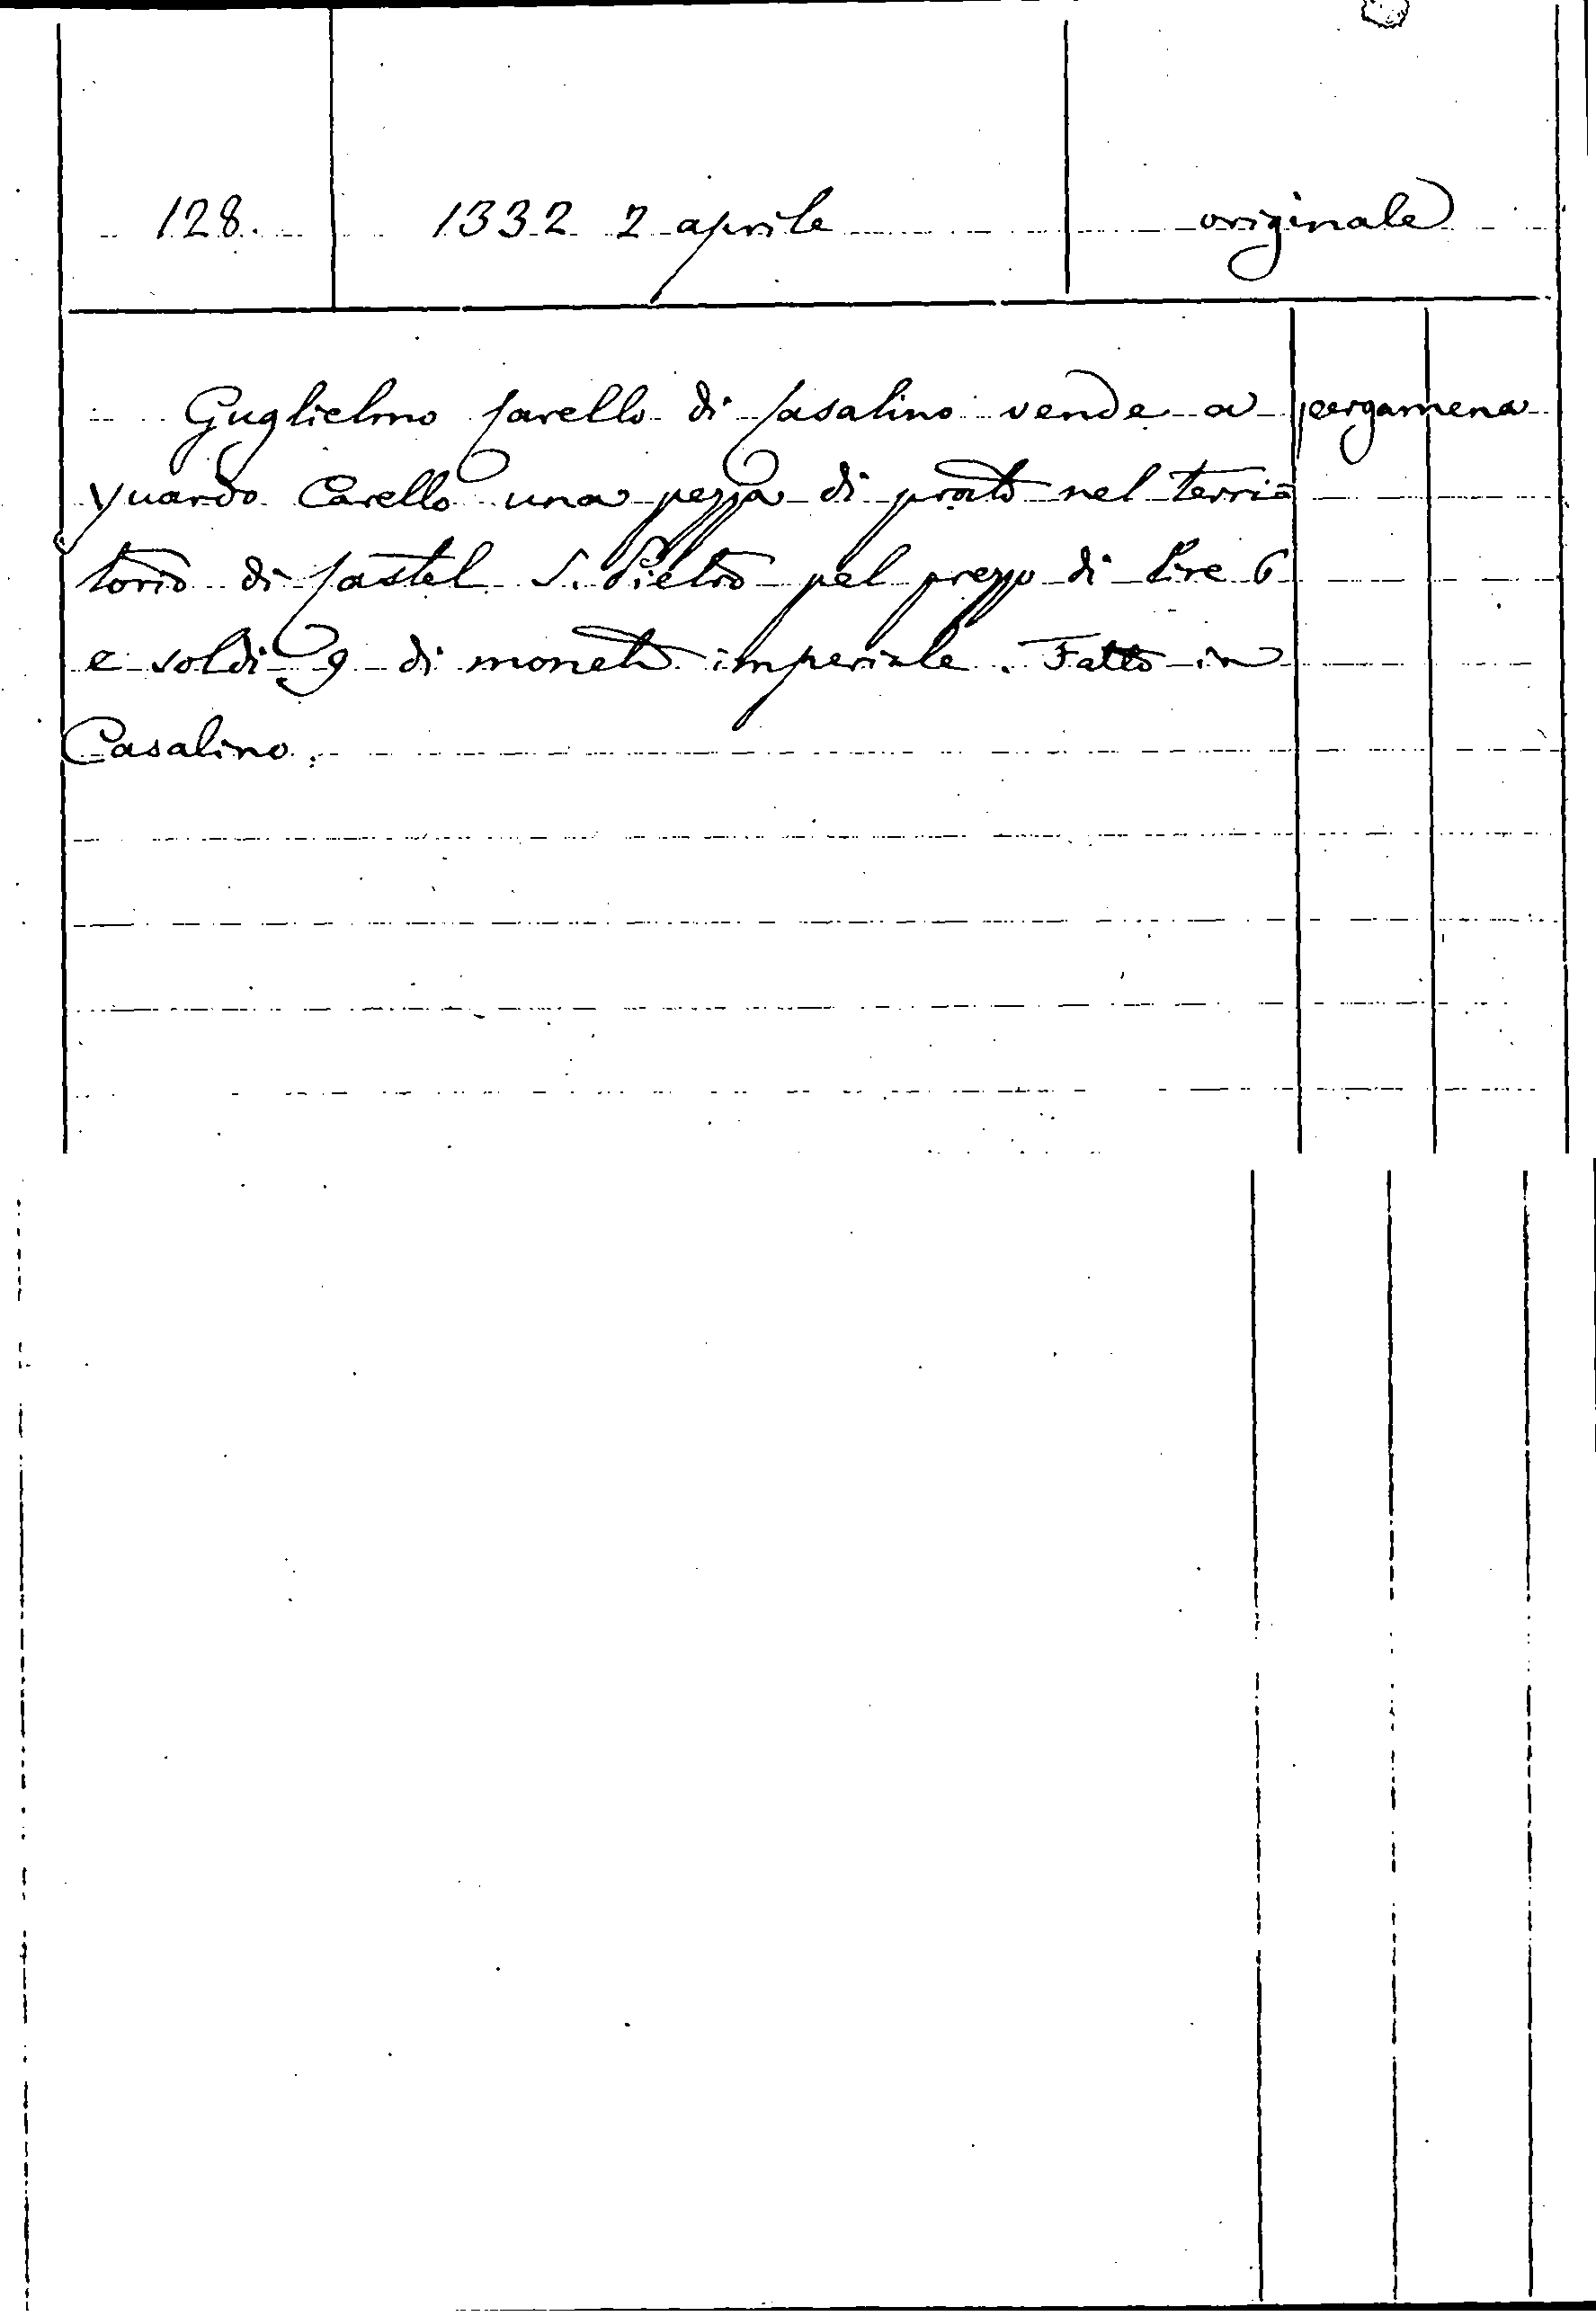 128. 1332 2 aprile originale
Guglielmo Carello di Casalino vende a pergamena
Yuardo Carello una pezza di prato nel terri=
torio di Castel S. Pietro pel prezzo di Lire 6
e soldi 9 di moneta imperiale. Fatto in
Casalino.